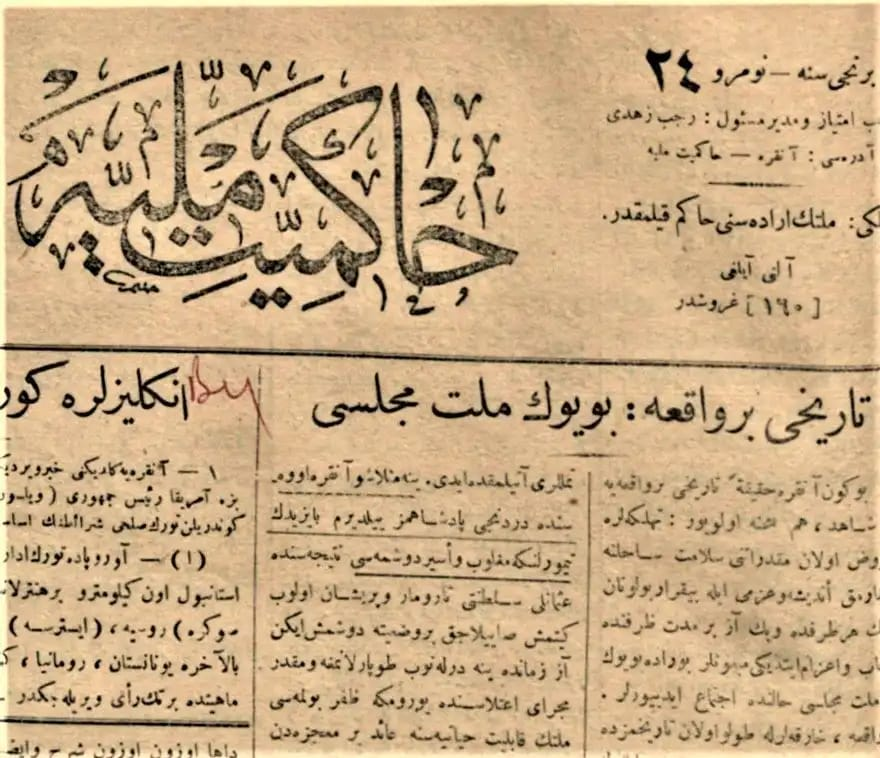 حاكميت مليه
برنجی سنه — نومرو ٢٤
امتياز ومدير مسئول : رجب زهدی
آدره سی : آنقره — حاكميت مليه
ملتك اراده سنی حاكم قيلمقدر.
آلتی آيلغی
[١٦٠] غروشدر
تاريخی بر واقعه : بويوك ملت مجلسی
بوكون آنقره حقيقةً تاريخی بر واقعه يه
شاهد ، هم صحنه اولويور : تهلكه لره
اولان مقدراتنی سلامت ساحلنه
أنديشه وعزمی ايله بيقرار بولونان
هر طرفده وپك آز بر مدت ظرفنده
واعزام ايتديكی مبعوثلر بوراده بويوك
ملت مجلسی حالنده اجتماع ايديیورلر .
واقعه ، خارقه لرله طولو اولان تاريخمزده
تمللری آتيلمقده ايدی. ينه مثلا شو آنقره اووه
سنده دردنجی پادشاهمز ييلديرم بايزيدك
تيمورلنكه مغلوب وأسير دوشمه سی نتيجه سنده
عثمانلی سلطنتی تارومار وپريشان اولوب
كيتمش صاييلاجق بر وضعيته دوشمش ايكن
آز زمانده ينه درله نوب طوپارلانمغه ومقدر
مجرای اعتلاسنده يورومكه ظفر بولمه سی
ملتك قابليت حياتيه سنه عائد بر معجزه دن
انكليزلره
Bu
١ — آنقره يه كلديكی خبر
بزه آمريقا رئيس جمهوری
كوندريلن تورك صلحی شرائطنك
(١) — آوروپاده تورك
استانبول اون كيلومترو
صوكره) روسيه ، (ايسترسه)
بالآخره يونانستان ، رومانيا ،
ماهيتنده بر تك رأی ويريله جكدر
داها اوزون اوزون شرح